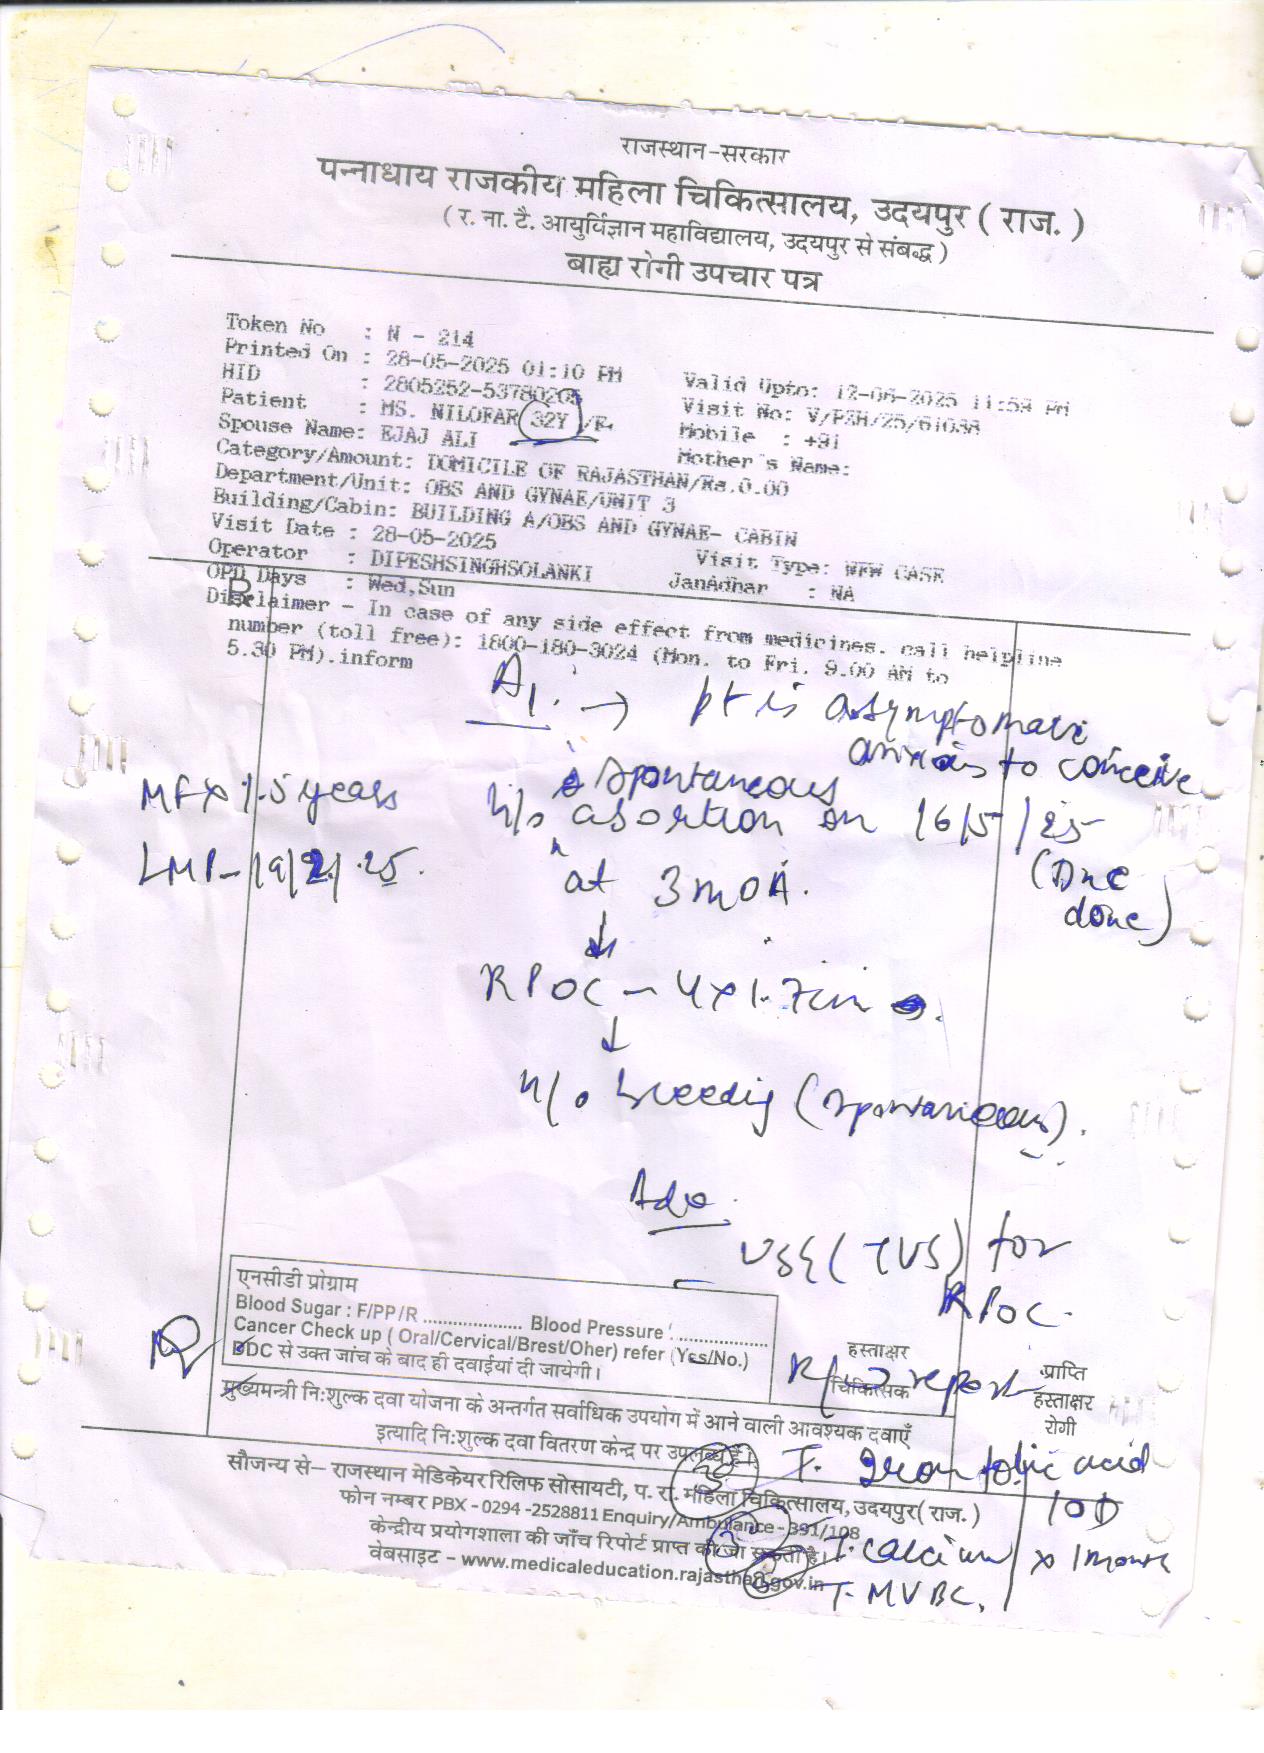 राजस्थान-सरकार
पन्नाधाय राजकीय महिला चिकित्सालय, उदयपुर ( राज. )
( र. ना. टै. आयुर्विज्ञान महाविद्यालय, उदयपुर से संबद्ध )
बाह्य रोगी उपचार पत्र
Token No : N - 214
Printed On : 28-05-2025 01:10 PM Valid Upto: 12-06-2025 11:59 PM
HID : 2805252-53780205 Visit No: V/PZH/25/61038
Patient : MS. NILOFAR 32Y /F. Mobile : +91
Spouse Name: EJAJ ALI Mother's Name:
Category/Amount: DOMICILE OF RAJASTHAN/Rs.0.00
Department/Unit: OBS AND GYNAE/UNIT 3
Building/Cabin: BUILDING A/OBS AND GYNAE- CABIN
Visit Date : 28-05-2025 Visit Type: NEW CASE
Operator : DIPESHSINGHSOLANKI JanAdhar : NA
OPD Days : Wed,Sun
Disclaimer - In case of any side effect from medicines. call helpline
number (toll free): 1800-180-3024 (Mon. to Fri. 9.00 AM to
5.30 PM).inform
A1. → pt is asymptomatic
anxious to conceive
MF x 1.5 years
H/o spontaneous abortion on 16/5/25
(DNC done)
LMP - 19/2/25.
at 3 MOA.
↓
RPOC - 4 x 1.7cm
↓
H/o bleeding (spontaneous).
Adv.
USG (TVS) for
RPOC.
R/w report
एनसीडी प्रोग्राम
Blood Sugar : F/PP/R .................... Blood Pressure : ..................
Cancer Check up ( Oral/Cervical/Brest/Oher) refer (Yes/No.)
DDC से उक्त जांच के बाद ही दवाईयां दी जायेगी।
हस्ताक्षर
चिकित्सक
प्राप्ति
हस्ताक्षर
रोगी
मुख्यमन्त्री निःशुल्क दवा योजना के अन्तर्गत सर्वाधिक उपयोग में आने वाली आवश्यक दवाएँ
इत्यादि निःशुल्क दवा वितरण केन्द्र पर उपलब्ध हैं।
T. Iron folic acid
सौजन्य से– राजस्थान मेडिकेयर रिलिफ सोसायटी, प. रा. महिला चिकित्सालय, उदयपुर( राज. )
1OD
फोन नम्बर PBX - 0294 -2528811 Enquiry/Ambulance - 391/108
केन्द्रीय प्रयोगशाला की जाँच रिपोर्ट प्राप्त की जा सकती है।
T. calcium x 1 month
वेबसाइट - www.medicaleducation.rajasthan.gov.in
T. MVBC.